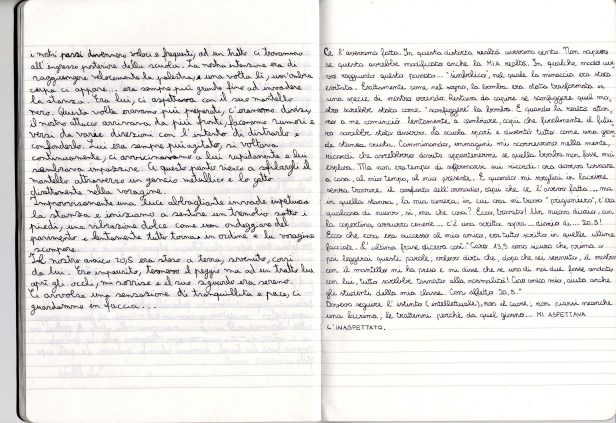 i nostri passi divennero veloci e frequenti, ad un tratto ci trovammo
all'ingresso posteriore della scuola. La nostra intenzione era di
raggiungere velocemente la palestra, e una volta lì, un'ombra
cupa ci appare... era sempre più grande fino ad invadere
la stanza. Era lui, ci aspettava con il suo mantello
nero. Questa volta eravamo più preparati, c'eravamo divisi,
il nostro attacco arrivava da più fronti, facemmo rumori e
versi da varie direzioni con l'intento di distrarlo e
confonderlo. Lui era sempre più agitato, si voltava
continuamente, ci avvicinavamo a lui rapidamente e lui
sembrava impazzire. A questo punto riesco a sfilargli il
mantello attraverso un gancio metallico e lo getto
direttamente nella voragine.
Improvvisamente una luce abbagliante invade
la stanza e iniziamo a sentire un tremolio sotto i
piedi, una vibrazione dolce come un ondeggiare del
pavimento e lentamente tutto torna in ordine e la voragine
scompare.
Il nostro amico 20,5 era steso a terra, svenuto, corsi
da lui. Era impaurito, temevo il peggio ma ad un tratto lui
aprì gli occhi, mi sorrise e il suo sguardo era sereno.
Ci avvolse una sensazione di tranquillità e pace, ci
guardammo in faccia...
Ce l'avevamo fatta. In questa distorta realtà avevamo vinto. Non sapevo
se questo avrebbe modificato anche la MIA realtà. In qualche modo
raggiunto questo passato "simbolico", nel quale la minaccia era stata
evitata. Esattamente come nel sogno, la bomba era stata trasformata in
una specie di mostro orrendo. Restava da capire se sconfiggere quel
mostro sarebbe stato come "sconfiggere" la bomba. E quando la realtà
a me cominciò lentamente a cambiare, capii che finalmente il
sarebbe stato diverso. La scuola sparì e diventò tutto come una
stanza vuota. Camminando, immagini mi scorrevano nella mente,
ricordi che avrebbero dovuto appartenermi se quella bomba non fosse mai
esplosa. Ma non era tempo di soffermarsi sui ricordi: ora dovevo tornare
a casa, al mio tempo, al mio presente. E quando mi svegliai in lacrime
senza trovare il conforto dell'armadio, capii che ce l'avevo fatta... ma
in quella stanza, la mia camera, in cui ora mi trovo "prigioniero", c'era
qualcosa di nuovo, sì, ma che cosa? Ecco, trovato! Un nuovo diario, con
la copertina azzurra cenere... c'è una scritta sopra... diario di... 20,5!
Ecco che cosa era successo al mio amico, era tutto scritto in quelle ultime
facciate. L'ultima frase diceva così: "Caro 13,5 sono sicuro che prima o
poi leggerai queste parole, volevo dirti che, dopo che sei svenuto, il mostro
con il mantello mi ha preso e mi disse che se uno di noi due fosse andato
con lui, tutto sarebbe tornato alla normalità! Caro amico mio, aiuta anche
gli studenti della mia classe. Con affetto 20,5."
Dovevo seguire l'istinto (intellettuale), non il cuore, non piansi neanche
una lacrima, le trattenni perché da quel giorno... MI ASPETTAVA
L'INASPETTATO.